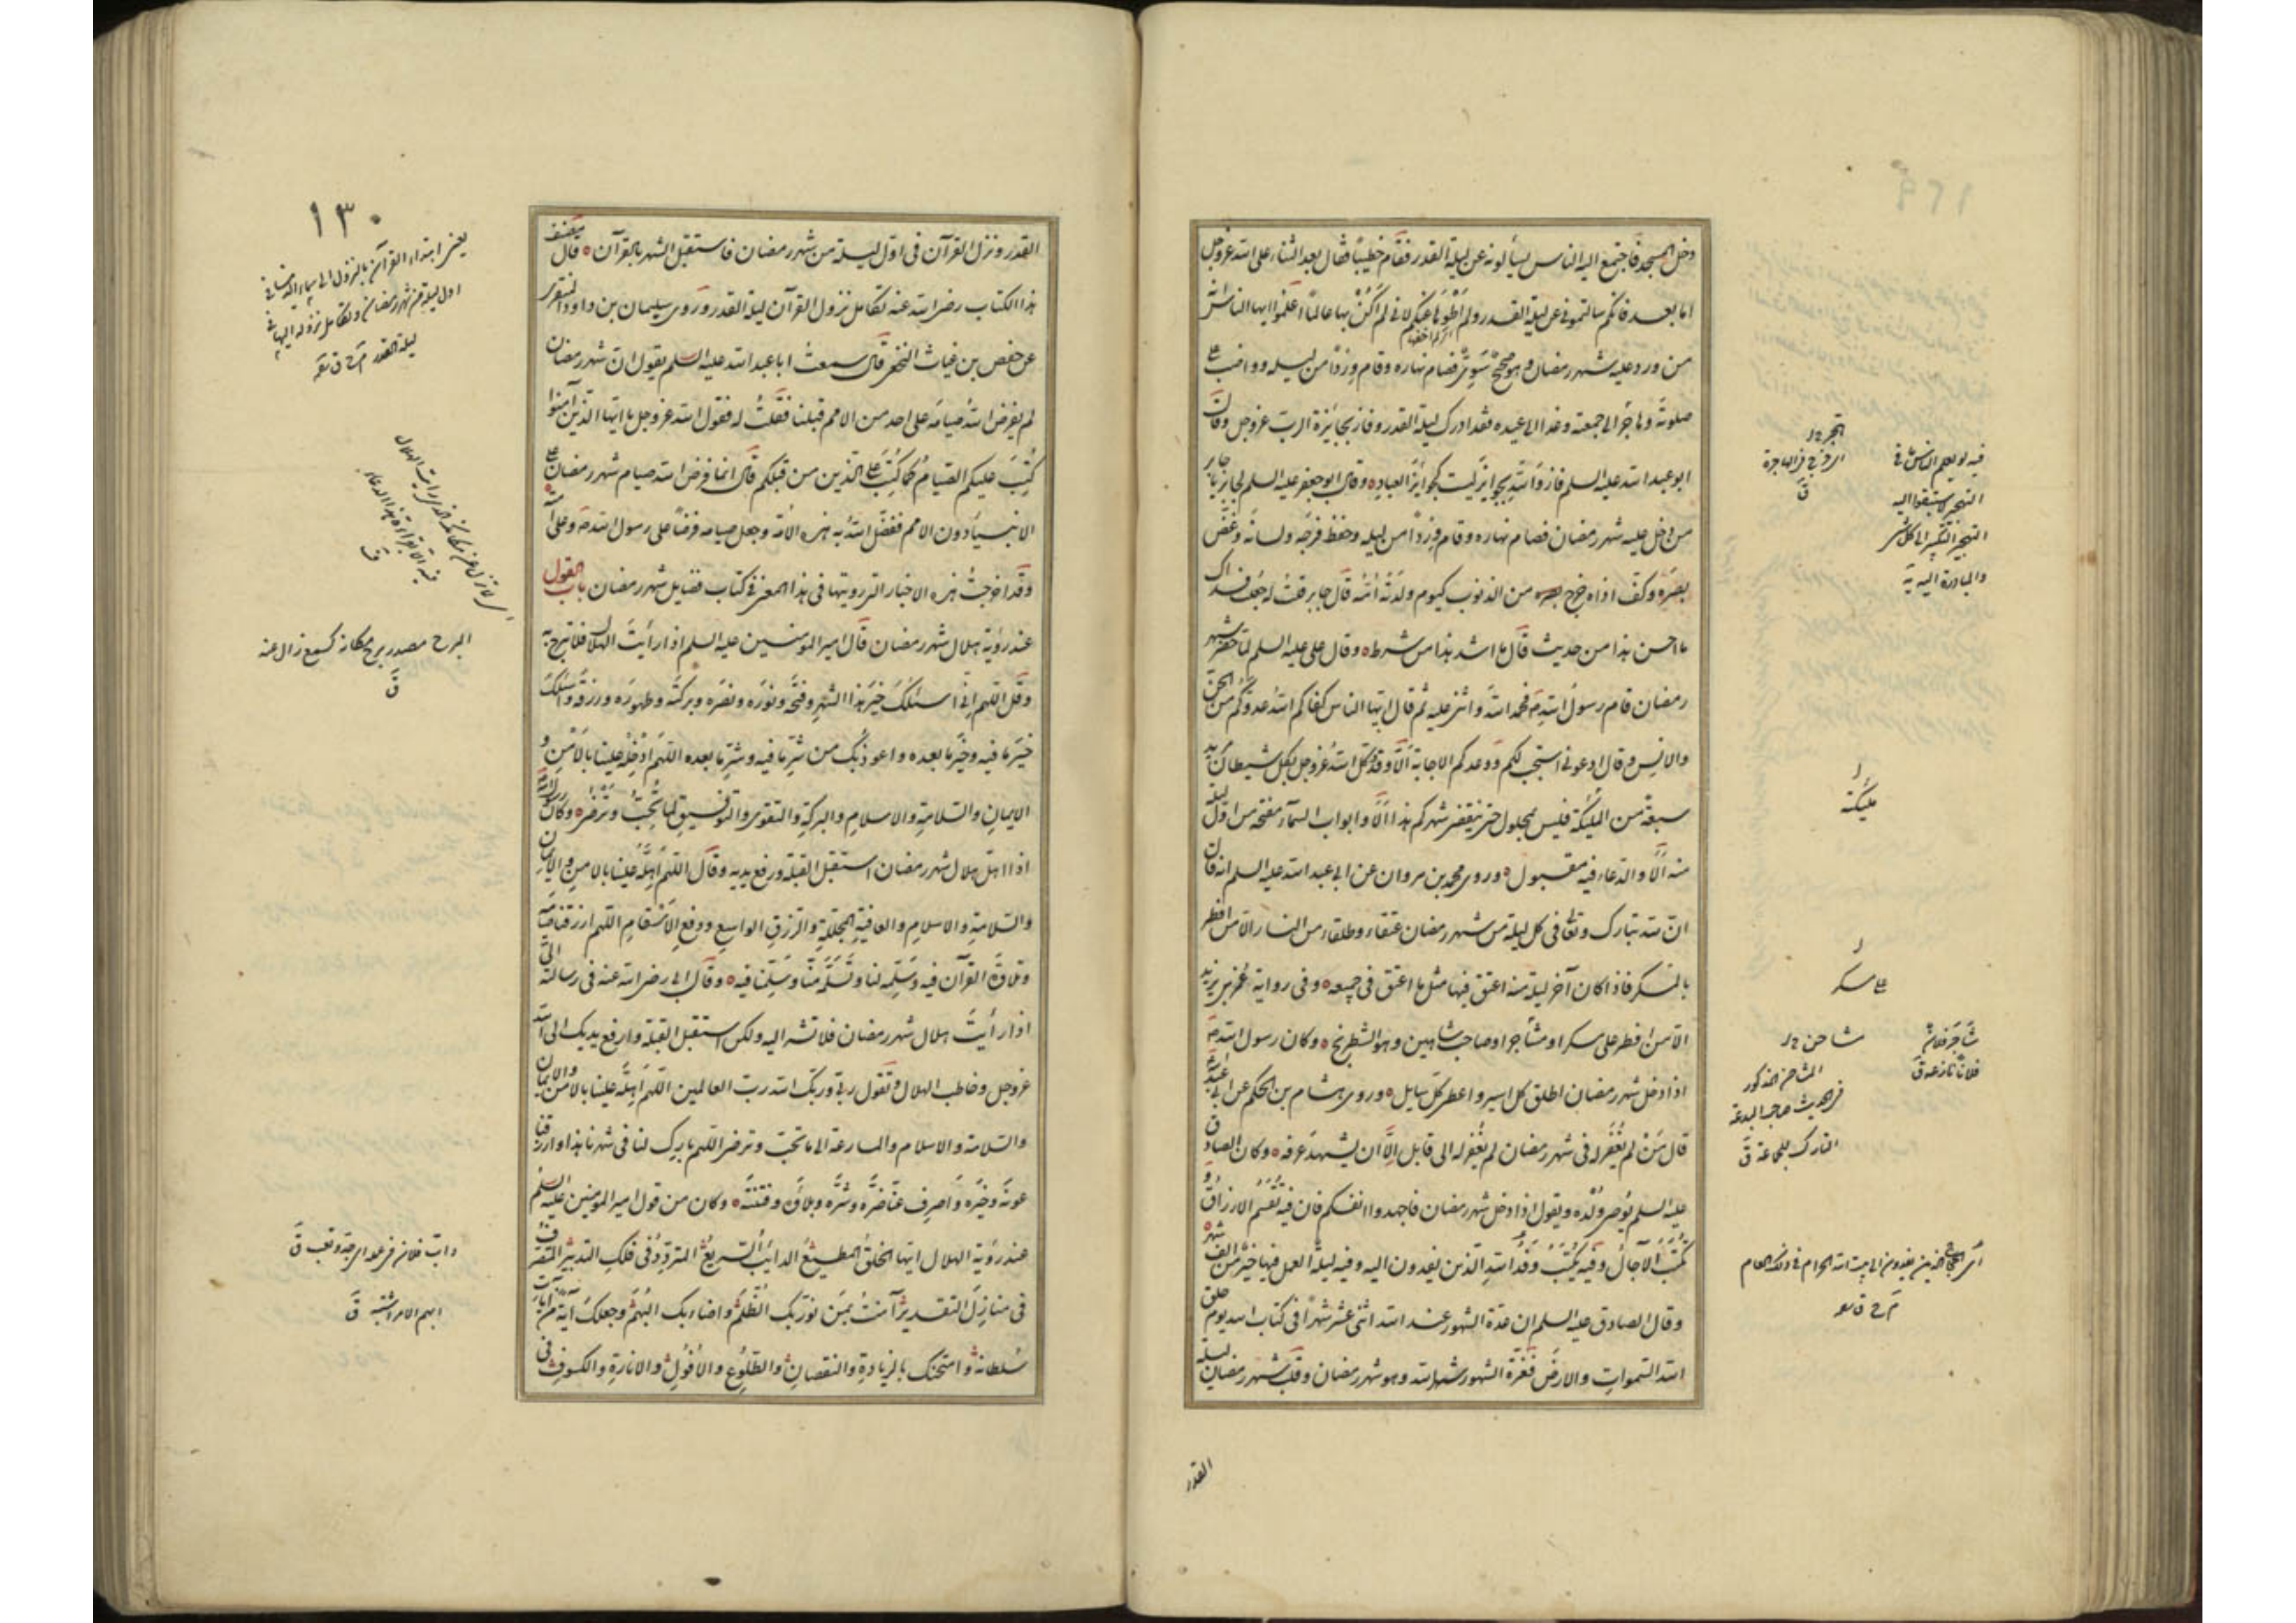 دخل المسجد فاجتمع اليه الناس يسألونه عن ليلة القدر فقام خطيبًا فقال بعد الثناء على الله عزوجل
اما بعد فانكم سالتموني عن ليلة القدر ولم اطوها عنكم لاني لم اكن بها عالمًا اعلموا ايها الناس انه
من ورد عليه شهر رمضان وهو صحيح سوي فصام نهاره وقام وردًا من ليله وواظب على
صلوته وهاجر الى جمعته وغدا الى عيده فقد ادرك ليلة القدر وفاز بجائزة الرب عزوجل وقال
ابو عبد الله عليه السلم فاز والله بجوايز ليست كجوايز العباد وقال ابو جعفر عليه السلم لجابر يا جابر
من دخل عليه شهر رمضان فصام نهاره وقام وردًا من ليله وحفظ فرجه ولسانه وغض
بصره وكف اذاه خرج من الذنوب كيوم ولدته امه قال جابر قلت له جعلت فداك
ما احسن هذا من حديث قال ما اشد هذا من شرط وقال علي عليه السلم لما حضر شهر
رمضان قام رسول الله ص فحمد الله واثنى عليه ثم قال ايها الناس كفاكم الله عدوكم من الجن
والانس وقال ادعوني استجب لكم ووعدكم الاجابة الا وقد وكل الله عزوجل بكل شيطان مريد
سبعة من الملئكة فليس بمحلول حتى ينقضي شهركم هذا الا وابواب السماء مفتحة من اول ليلة
منه الا والدعاء فيه مقبول وروى محمد بن مروان عن ابي عبد الله عليه السلم انه قال
ان لله تبارك وتعالى في كل ليلة من شهر رمضان عتقاء وطلقاء من النار الا من افطر
بالمسكر فاذا كان آخر ليلة منه اعتق فيها مثل ما اعتق في جميعه وفي رواية عمر بن يزيد
الا من افطر على مسكر او مشاجرا او صاحب شاهين وهو الشطرنج وكان رسول الله ص
اذا دخل شهر رمضان اطلق كل اسير واعطى كل سايل وروى هشام بن الحكم عن ابي عبد الله
قال من لم يغفر له في شهر رمضان لم يغفر له الى قابل الا ان يشهد عرفه وكان الصادق
عليه السلم يوصي ولده ويقول اذا دخل شهر رمضان فاجهدوا انفسكم فان فيه تقسم الارزاق و
تكتب الآجال وفيه يكتب وفد الله الذين يفدون اليه وفيه ليلة العمل فيها خير من الف شهر
وقال الصادق عليه السلم ان عدة الشهور عند الله اثنى عشر شهرًا في كتاب الله يوم خلق
الله السموات والارض فغرة الشهور شهر الله وهو شهر رمضان وقلب شهر رمضان ليلة
القدر
فيه لو يعلم الناس ما في
التهجير لاستبقوا اليه
التهجير التبكير الى كل شئ
والمبادرة اليه يه
مليكة
على مسكر
شاجر فلان
فلانًا نازعه ق
شاحن
المشاحن المذكور
في الحديث صاحب البدعة
التارك للجماعة ق
اي الحجاج الذين يفدون الى بيت الله الحرام في ذلك العام
١٣٠
يعني ابتداء القرآن بالنزول الى سماء الدنيا في
اول ليلة من شهر رمضان وتكامل نزوله اليها في
ليلة القدر
البرح مصدر برح مكانه كسمع زال عنه
ق
داب فلان في عمله اي جد وتعب ق
ابهم الامر اشتبه ق
القدر ونزل القرآن في اول ليلة من شهر رمضان فاستقبل الشهر بالقرآن قال مصنف
هذا الكتاب رضي الله عنه تكامل نزول القرآن ليلة القدر وروى سليمان بن داود المنقري
عن حفص بن غياث النخعي قال سمعت ابا عبد الله عليه السلم يقول ان شهر رمضان
لم يفرض الله صيامه على احد من الامم قبلنا فقلت له فقول الله عزوجل يا ايها الذين آمنوا
كتب عليكم الصيام كما كتب على الذين من قبلكم قال انما فرض الله صيام شهر رمضان على
الانبياء دون الامم ففضل الله به هذه الامة وجعل صيامه فرضًا على رسول الله ص وعلى امته
وقد اخرجت هذه الاخبار التي رويتها في هذا المعنى في كتاب فضايل شهر رمضان باب القول
عند رؤية هلال شهر رمضان قال امير المومنين عليه السلم اذا رأيت الهلال فلا تبرح
وقل اللهم اني اسئلك خير هذا الشهر وفتحه ونوره ونصره وبركته وطهوره ورزقه واسئلك
خير ما فيه وخير ما بعده واعوذ بك من شر ما فيه وشر ما بعده اللهم ادخله علينا بالامن و
الايمان والسلامة والاسلام والبركة والتقوى والتوفيق لما تحب وترضى وكان رسول الله
اذا اهل هلال شهر رمضان استقبل القبلة ورفع يديه وقال اللهم اهله علينا بالامن والايمان
والسلامة والاسلام والعافية المجللة والرزق الواسع ودفع الاسقام اللهم ارزقنا صيامه
وتلاوة القرآن فيه وسلمه لنا وتسلمه منا وسلمنا فيه وقال ابي رضي الله عنه في رسالته الي
اذا رأيت هلال شهر رمضان فلا تشر اليه ولكن استقبل القبلة وارفع يديك الى الله
عزوجل وخاطب الهلال وتقول ربي وربك الله رب العالمين اللهم اهله علينا بالامن والايمان
والسلامة والاسلام والمسارعة الى ما تحب وترضى اللهم بارك لنا في شهرنا هذا وارزقنا
عونه وخيره واصرف عنا ضره وشره وبلاءه وفتنته وكان من قول امير المومنين عليه السلم
عند رؤية الهلال ايها الخلق المطيع الدايب السريع المتردد في فلك التدبير المتصرف
في منازل التقدير آمنت بمن نور بك الظلم واضاء بك البهم وجعلك آية من آيات
سلطانه وامتحنك بالزيادة والنقصان والطلوع والافول والانارة والكسوف في